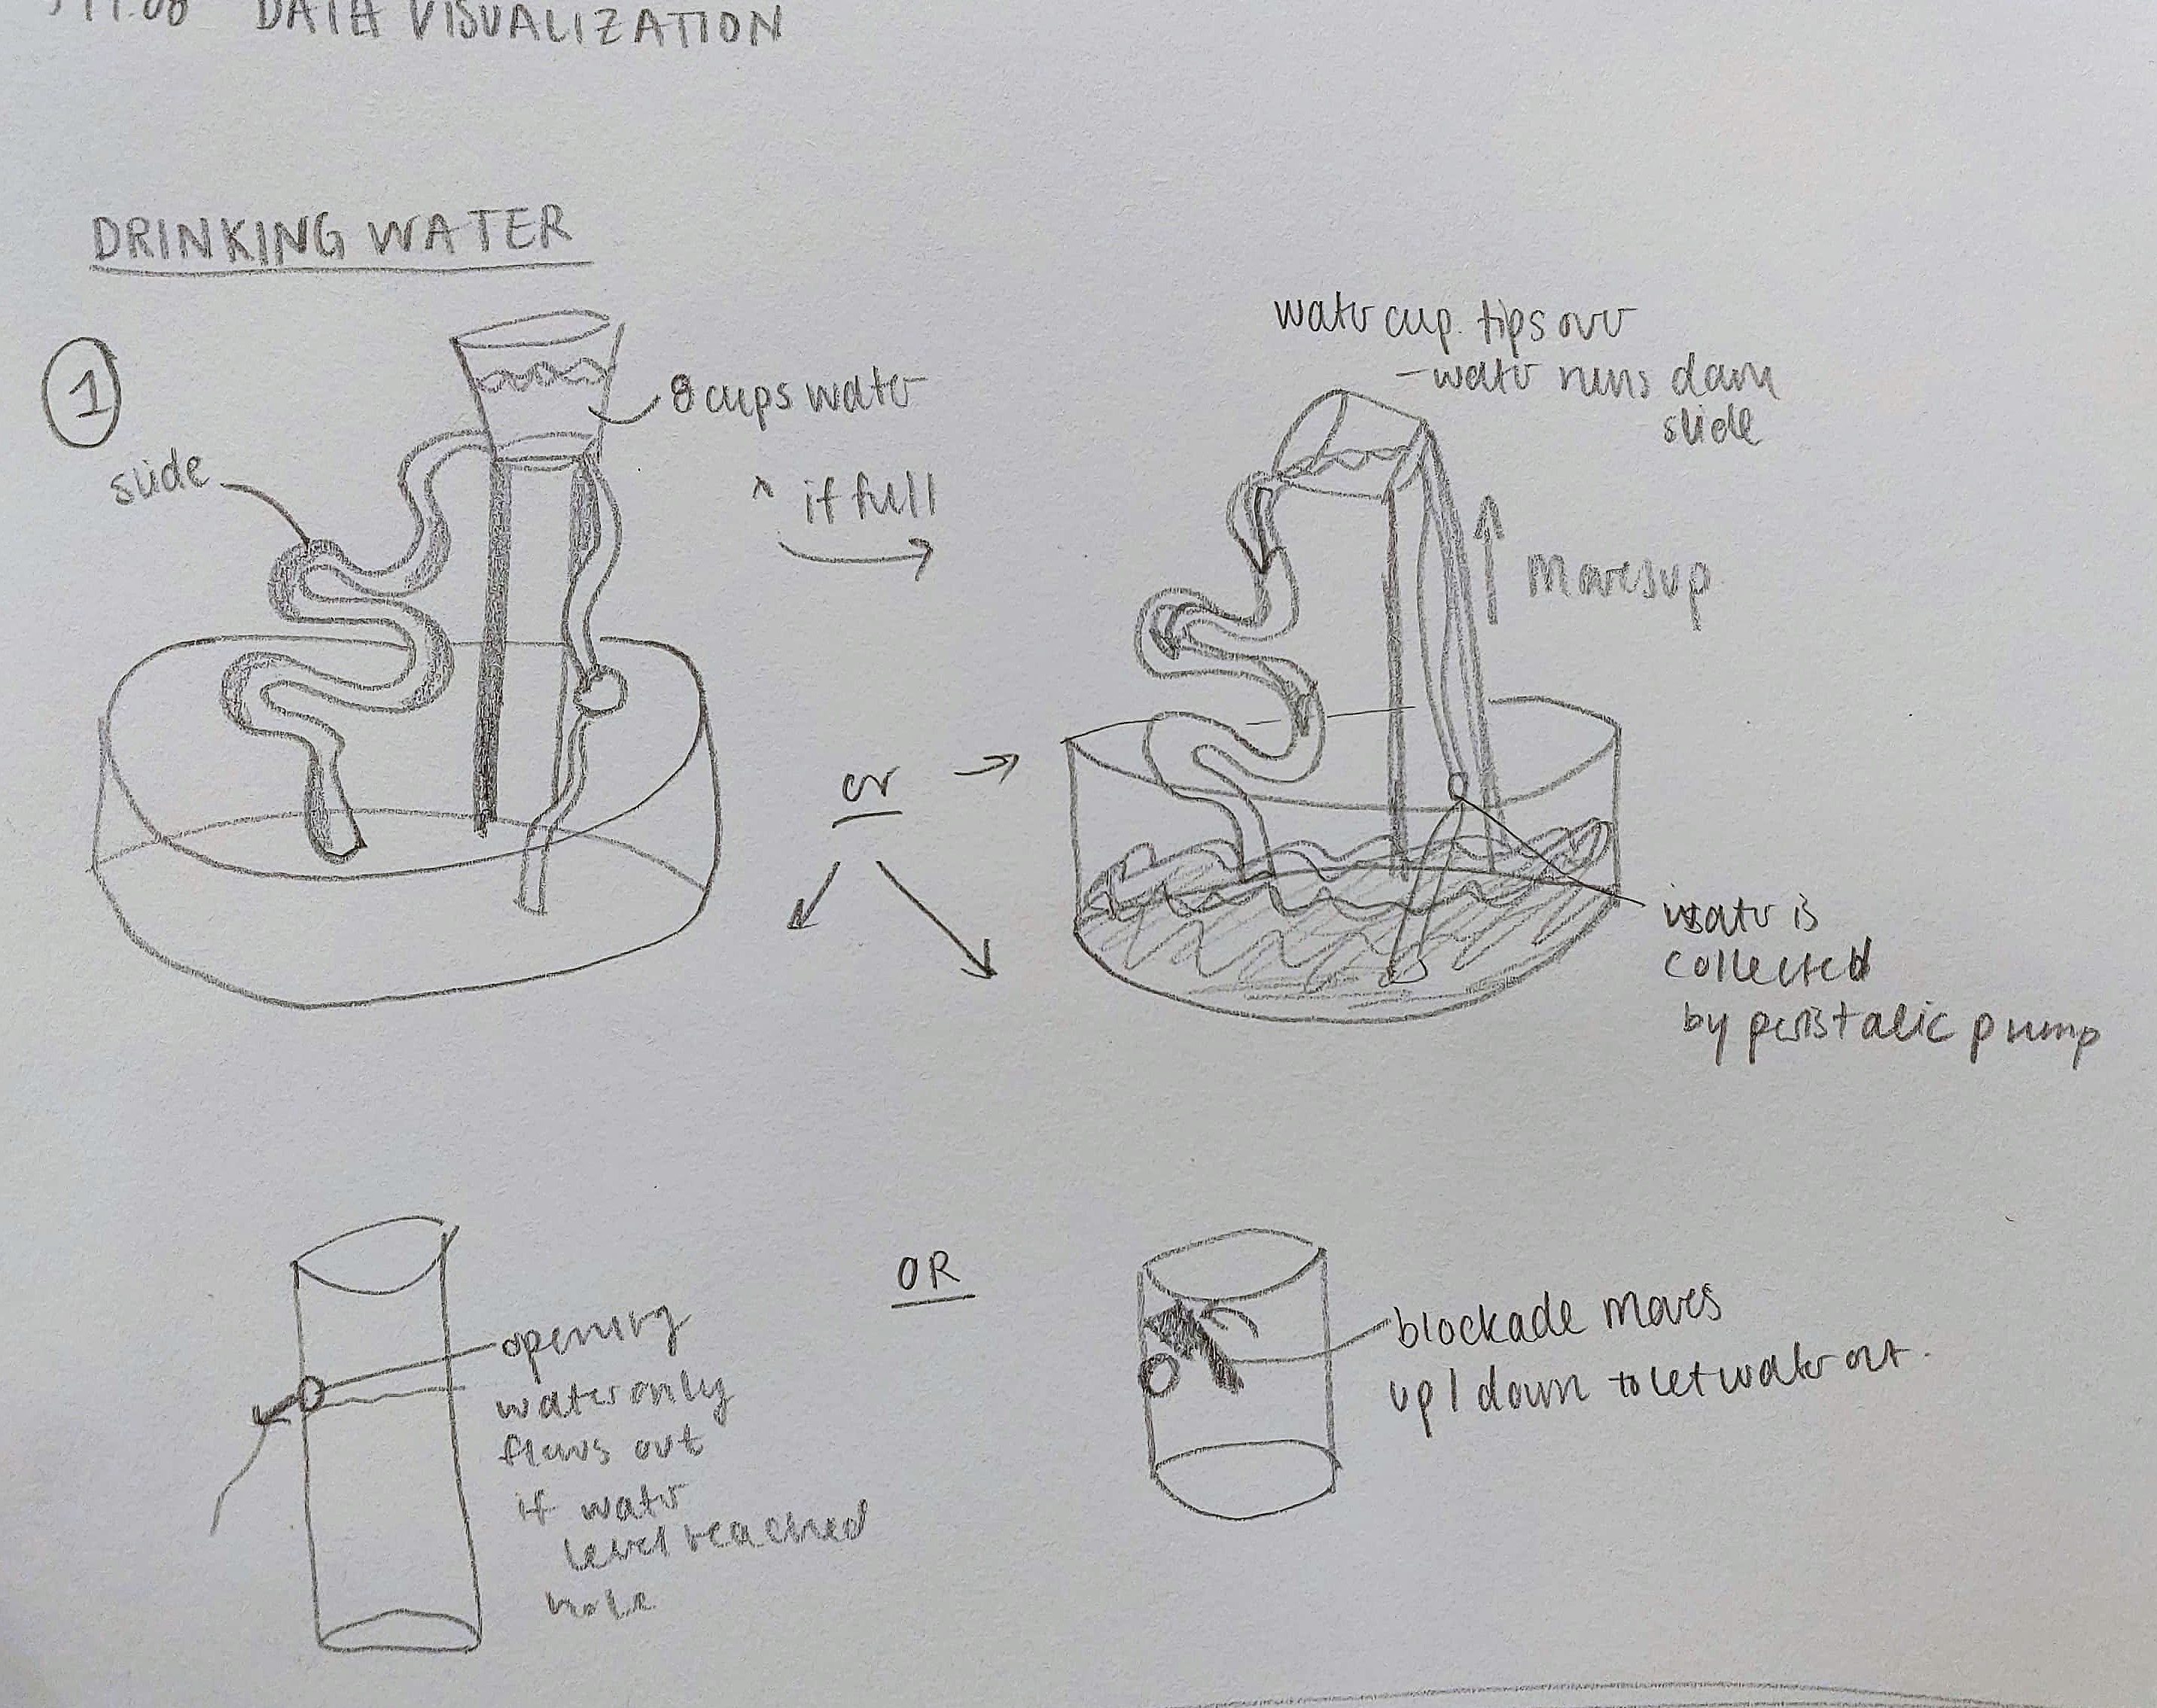 DATA VISUALIZATION
DRINKING WATER
1
slide
8 cups water
^ if full
or
water cup tips over
- water runs down
slide
Moves up
water is
collected
by peristalic pump
opening
water only
flows out
if water
level reached
hole
OR
blockade moves
up / down to let water out.